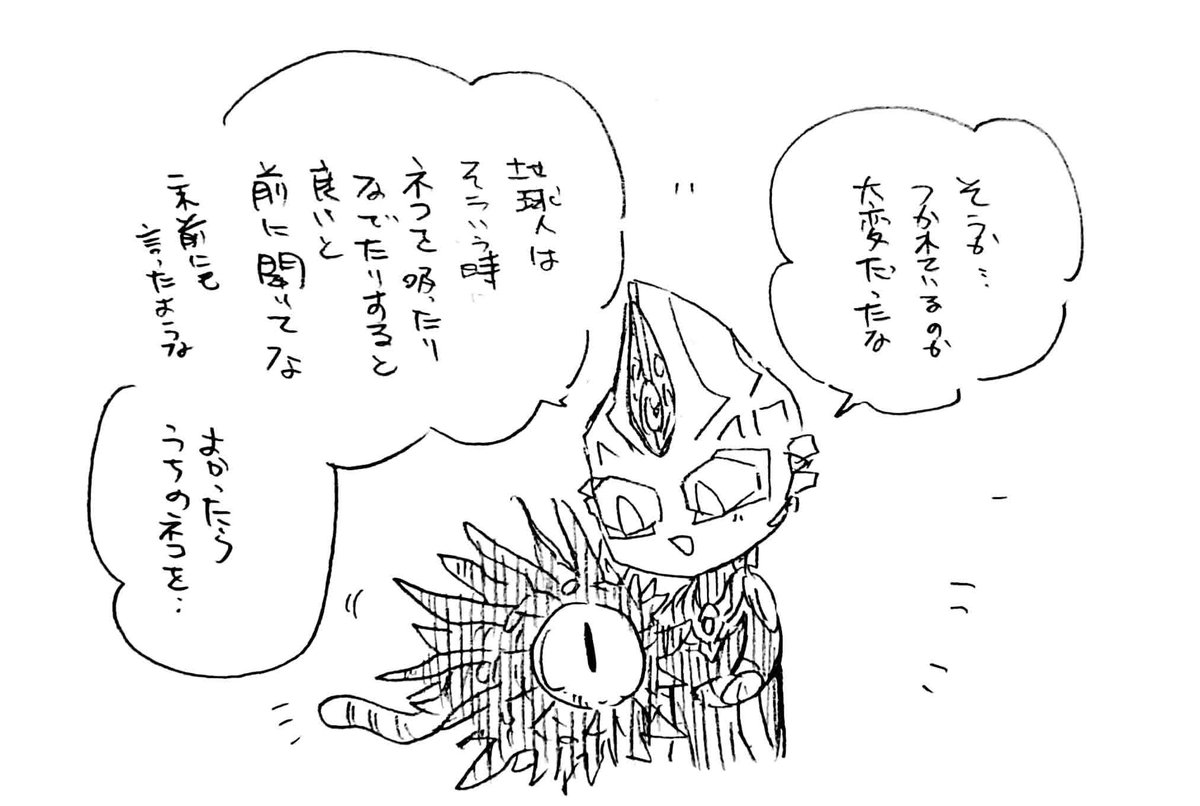 そうか…
つかれているのか
大変だったな
地球人は
そういう時
ネコを吸ったり
なでたりすると
良いと
前に聞いてな
言ったような
よかったら
うちのネコを…